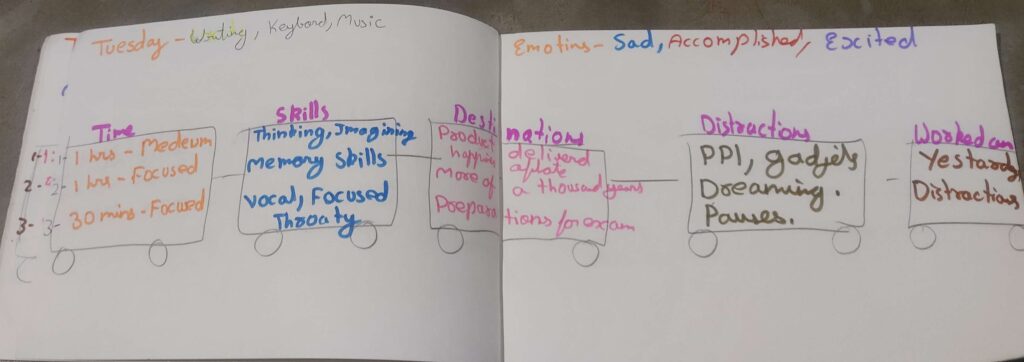 Tuesday - Writing, Keybord, Music
Emotins - Sad, Accomplished, Excited
Time
1 hrs - Medeum
1 hrs - Focused
30 mins - Focused
1 -
2 -
3 -
Skills
Thinking, Imagining
memory skills
vocal, Focused
Throaty
Destinations
Product deliverd
happine
More of a thousand years
Preparations for exam
Distractions
PPl, gadjets
Dreaming.
Pauses.
Worked on
Yestarday
Distractions